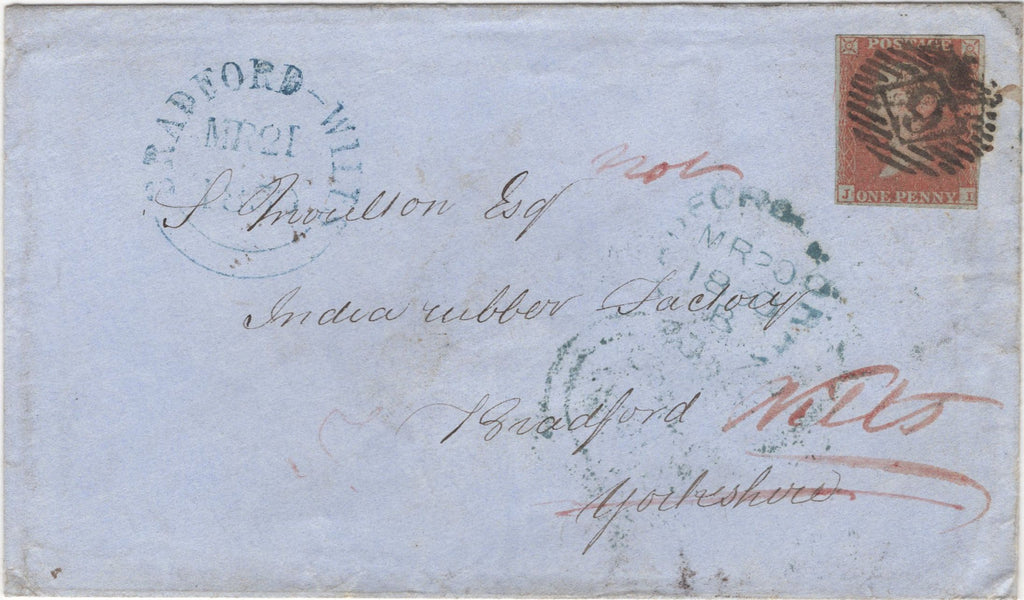 POSTAGE
J ONE PENNY I
BRADFORD-WILTS
MR21
not
S Moulton Esq
India rubber Factory
Bradford Wilts
Yorkshire
MR20